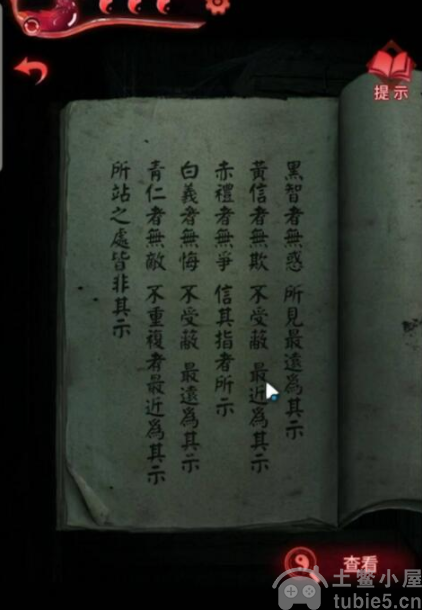 提示
黑智者無惑 所見最遠為其示
黃信者無欺 不受蔽 最近為其示
赤禮者無爭 信其指者所示
白義者無悔 不受蔽 最遠為其示
青仁者無敵 不重複者最近為其示
所站之處皆非其示
查看
土鳖小屋
tubie5.cn